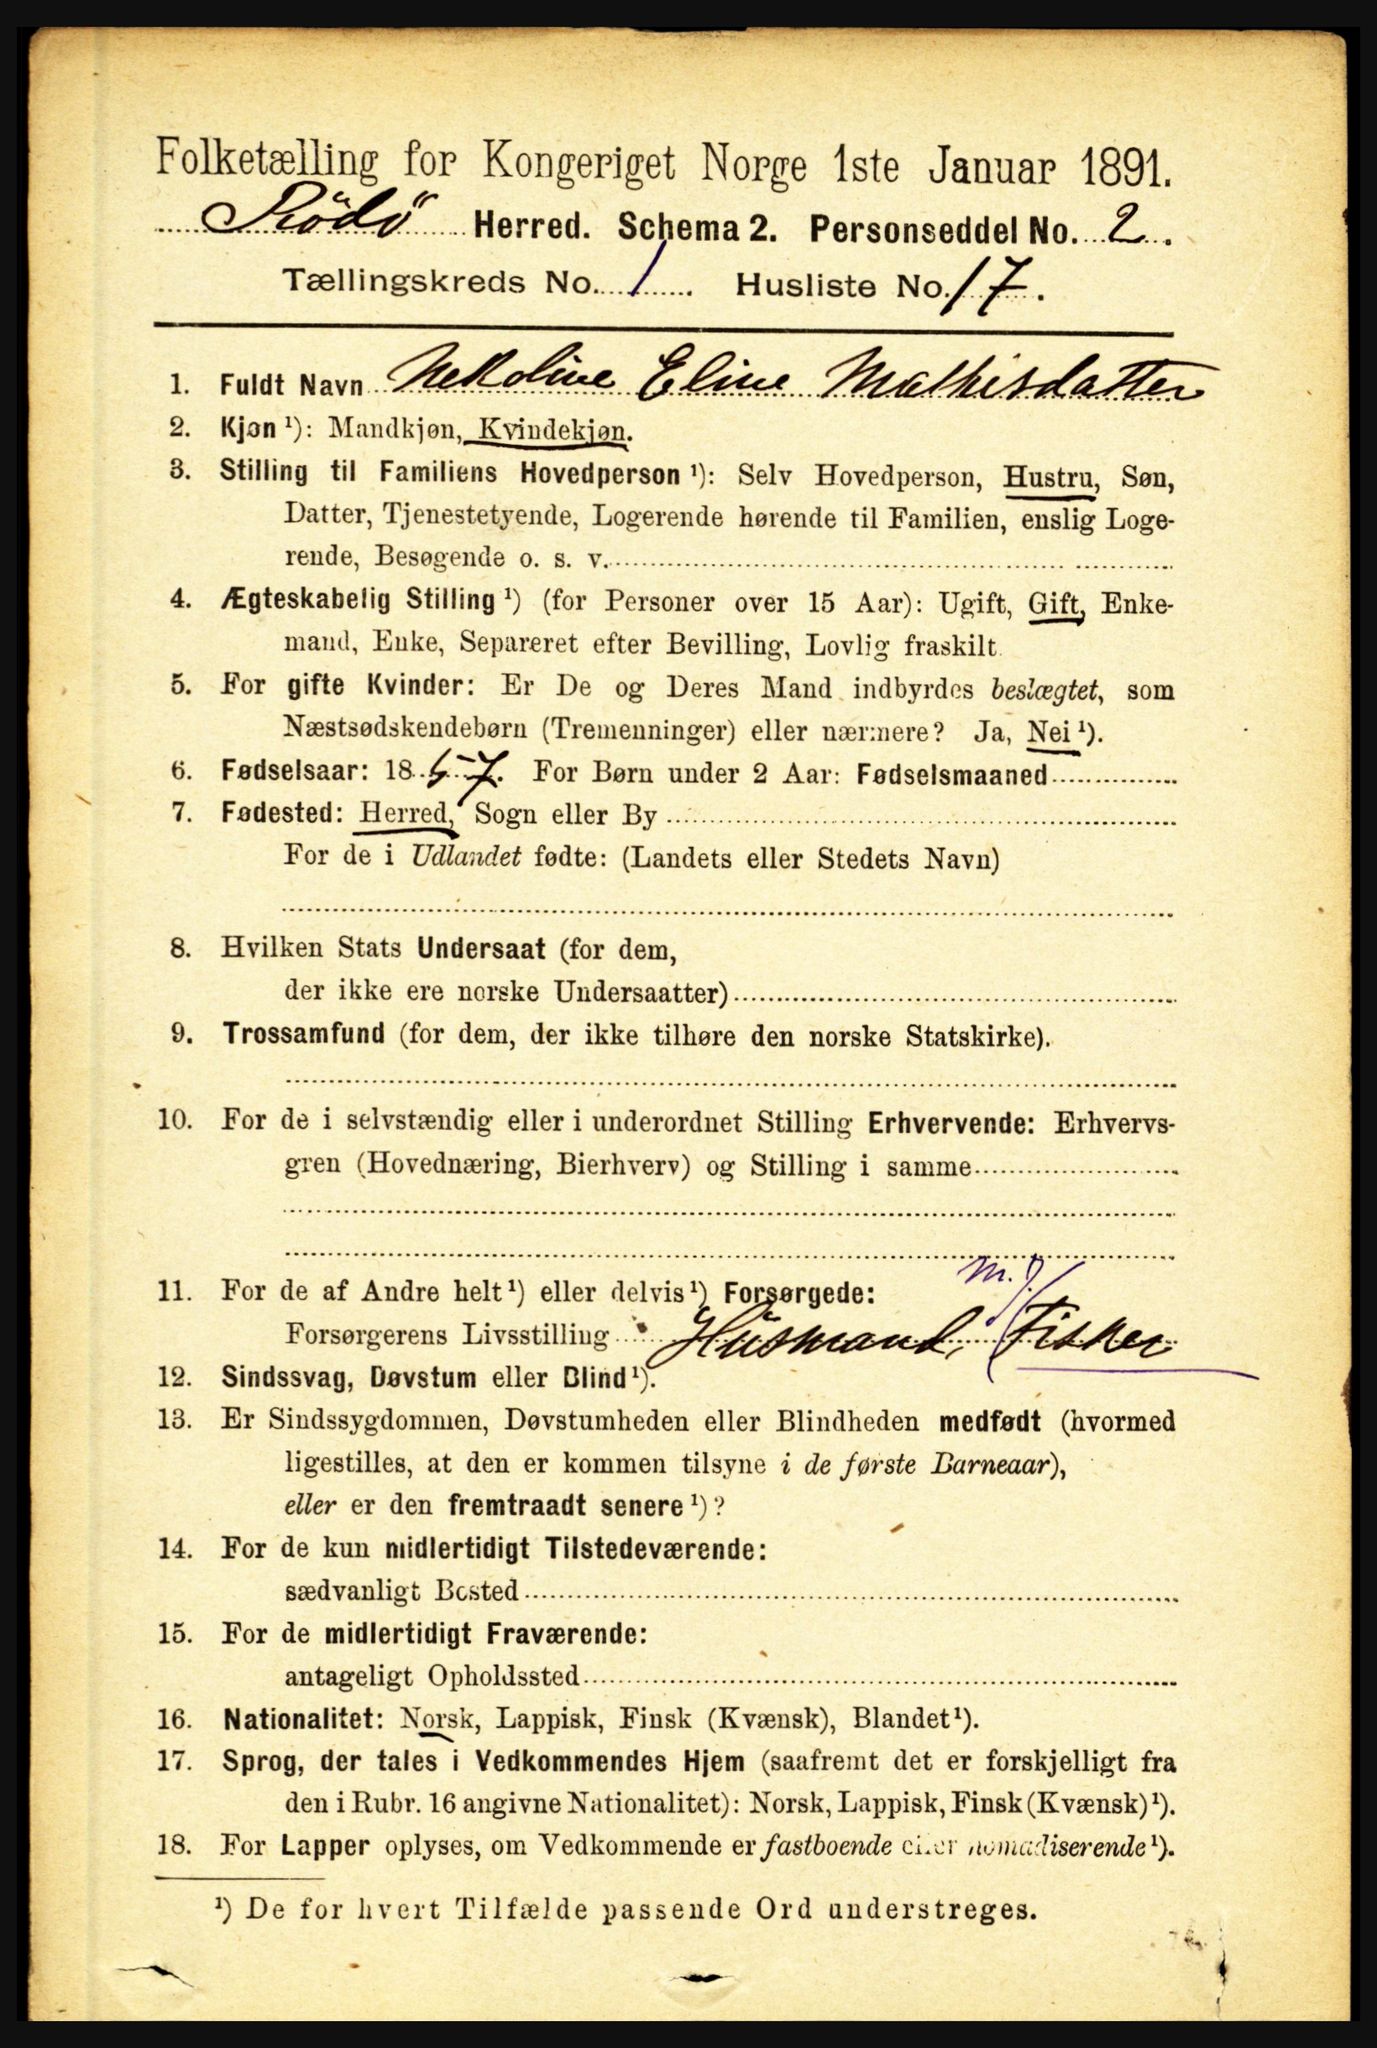 Folketælling for Kongeriget Norge 1ste Januar 1891.
Rödö Herred. Schema 2. Personseddel No. 2.
Tællingskreds No. 1. Husliste No. 17.
1. Fuldt Navn Nekoline Eline Mathisdatter
2. Kjøn ¹): Mandkjøn, Kvindekjøn.
3. Stilling til Familiens Hovedperson ¹): Selv Hovedperson, Hustru, Søn,
Datter, Tjenestetyende, Logerende hørende til Familien, enslig Loge-
rende, Besøgende o. s. v.
4. Ægteskabelig Stilling ¹) (for Personer over 15 Aar): Ugift, Gift, Enke-
mand, Enke, Separeret efter Bevilling, Lovlig fraskilt.
5. For gifte Kvinder: Er De og Deres Mand indbyrdes beslægtet, som
Næstsødskendebørn (Tremenninger) eller nærmere? Ja, Nei ¹).
6. Fødselsaar: 1857. For Børn under 2 Aar: Fødselsmaaned
7. Fødested: Herred, Sogn eller By
For de i Udlandet fødte: (Landets eller Stedets Navn)
8. Hvilken Stats Undersaat (for dem,
der ikke ere norske Undersaatter)
9. Trossamfund (for dem, der ikke tilhøre den norske Statskirke).
10. For de i selvstændig eller i underordnet Stilling Erhvervende: Erhvervs-
gren (Hovednæring, Bierhverv) og Stilling i samme
11. For de af Andre helt ¹) eller delvis ¹) Forsørgede:
Forsørgerens Livsstilling Husmand, Fisker
12. Sindssvag, Døvstum eller Blind ¹).
13. Er Sindssygdommen, Døvstumheden eller Blindheden medfødt (hvormed
ligestilles, at den er kommen tilsyne i de første Barneaar),
eller er den fremtraadt senere ¹)?
14. For de kun midlertidigt Tilstedeværende:
sædvanligt Bosted
15. For de midlertidigt Fraværende:
antageligt Opholdssted
16. Nationalitet: Norsk, Lappisk, Finsk (Kvænsk), Blandet ¹).
17. Sprog, der tales i Vedkommendes Hjem (saafremt det er forskjelligt fra
den i Rubr. 16 angivne Nationalitet): Norsk, Lappisk, Finsk (Kvænsk) ¹).
18. For Lapper oplyses, om Vedkommende er fastboende eller nomadiserende ¹).
¹) De for hvert Tilfælde passende Ord understreges.